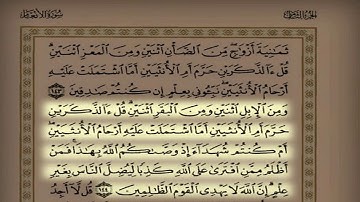 الجزء الثامن سورة الأنعام
ثَمَٰنِيَةَ أَزْوَٰجٍ مِّنَ ٱلضَّأْنِ ٱثْنَيْنِ وَمِنَ ٱلْمَعْزِ ٱثْنَيْنِ
قُلْ ءَآلذَّكَرَيْنِ حَرَّمَ أَمِ ٱلْأُنثَيَيْنِ أَمَّا ٱشْتَمَلَتْ عَلَيْهِ
أَرْحَامُ ٱلْأُنثَيَيْنِ نَبِّـُٔونِى بِعِلْمٍ إِن كُنتُمْ صَٰدِقِينَ ١٤٣
وَمِنَ ٱلْإِبِلِ ٱثْنَيْنِ وَمِنَ ٱلْبَقَرِ ٱثْنَيْنِ قُلْ ءَآلذَّكَرَيْنِ
حَرَّمَ أَمِ ٱلْأُنثَيَيْنِ أَمَّا ٱشْتَمَلَتْ عَلَيْهِ أَرْحَامُ ٱلْأُنثَيَيْنِ
أَمْ كُنتُمْ شُهَدَآءَ إِذْ وَصَّىٰكُمُ ٱللَّهُ بِهَٰذَا فَمَنْ
أَظْلَمُ مِمَّنِ ٱفْتَرَىٰ عَلَى ٱللَّهِ كَذِبًا لِّيُضِلَّ ٱلنَّاسَ بِغَيْرِ
عِلْمٍ إِنَّ ٱللَّهَ لَا يَهْدِى ٱلْقَوْمَ ٱلظَّٰلِمِينَ ١٤٤ قُل لَّآ أَجِدُ